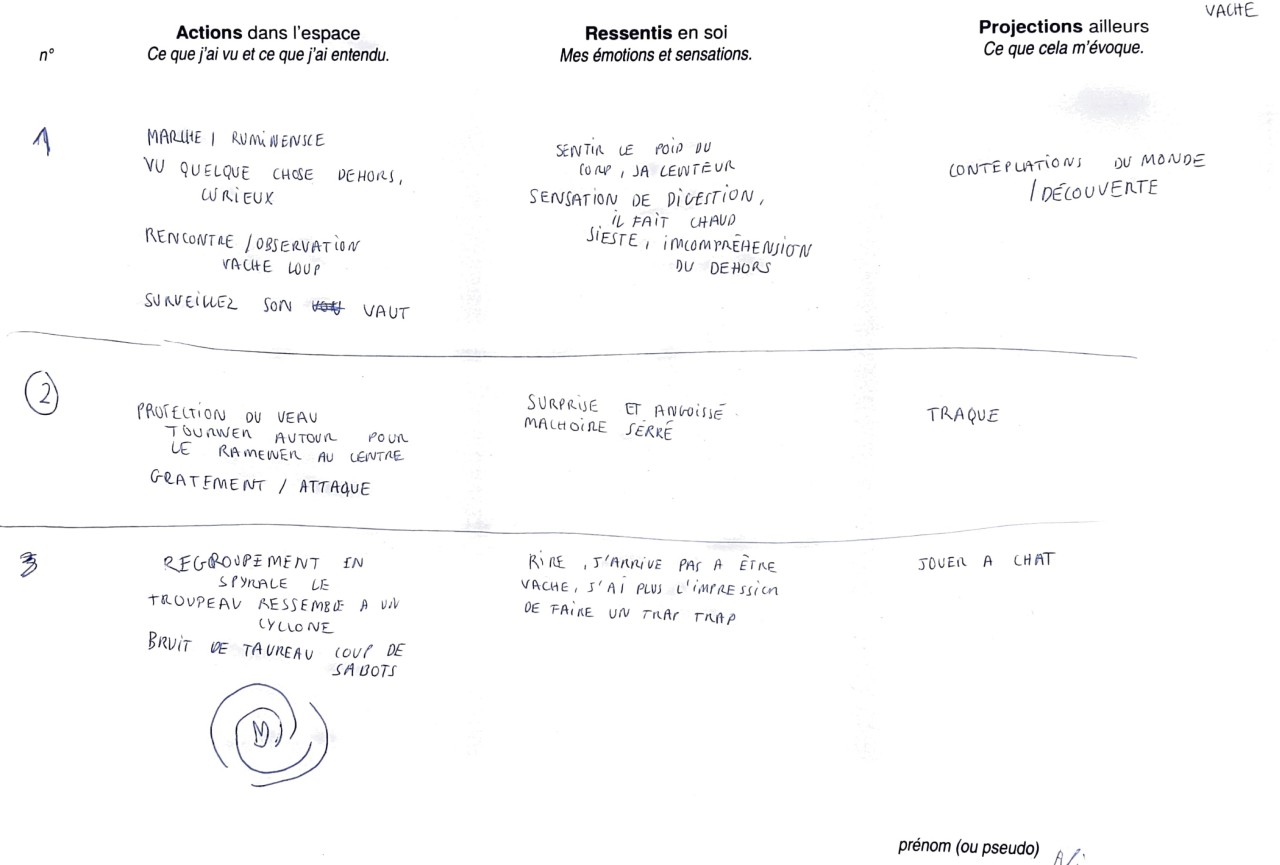 VACHE
n°
Actions dans l'espace
Ce que j'ai vu et ce que j'ai entendu.
Ressentis en soi
Mes émotions et sensations.
Projections ailleurs
Ce que cela m'évoque.
1
MARCHE / RUMINENSCE
VU QUELQUE CHOSE DEHORS,
CURIEUX
RENCONTRE / OBSERVATION
VACHE LOUP
SURVEILLEZ SON VAUT
SENTIR LE POID DU
CORP, SA LENTEUR
SENSATION DE DIGESTION,
IL FAIT CHAUD
SIESTE, IMCOMPRÉHENSION
DU DEHORS
CONTEPLATIONS DU MONDE
/ DÉCOUVERTE
2
PROTECTION DU VEAU
TOURNER AUTOUR POUR
LE RAMENER AU CENTRE
GRATEMENT / ATTAQUE
SURPRISE ET ANGOISSÉ
MACHOIRE SERRÉ
TRAQUE
3
REGROUPEMENT IN
SPYRALE LE
TROUPEAU RESSEMBLE A UN
CYCLONE
BRUIT DE TAUREAU COUP DE
SABOTS
RIRE, J'ARRIVE PAS A ÊTRE
VACHE, J'AI PLUS L'IMPRESSION
DE FAIRE UN TRAP TRAP
JOUER A CHAT
prénom (ou pseudo)